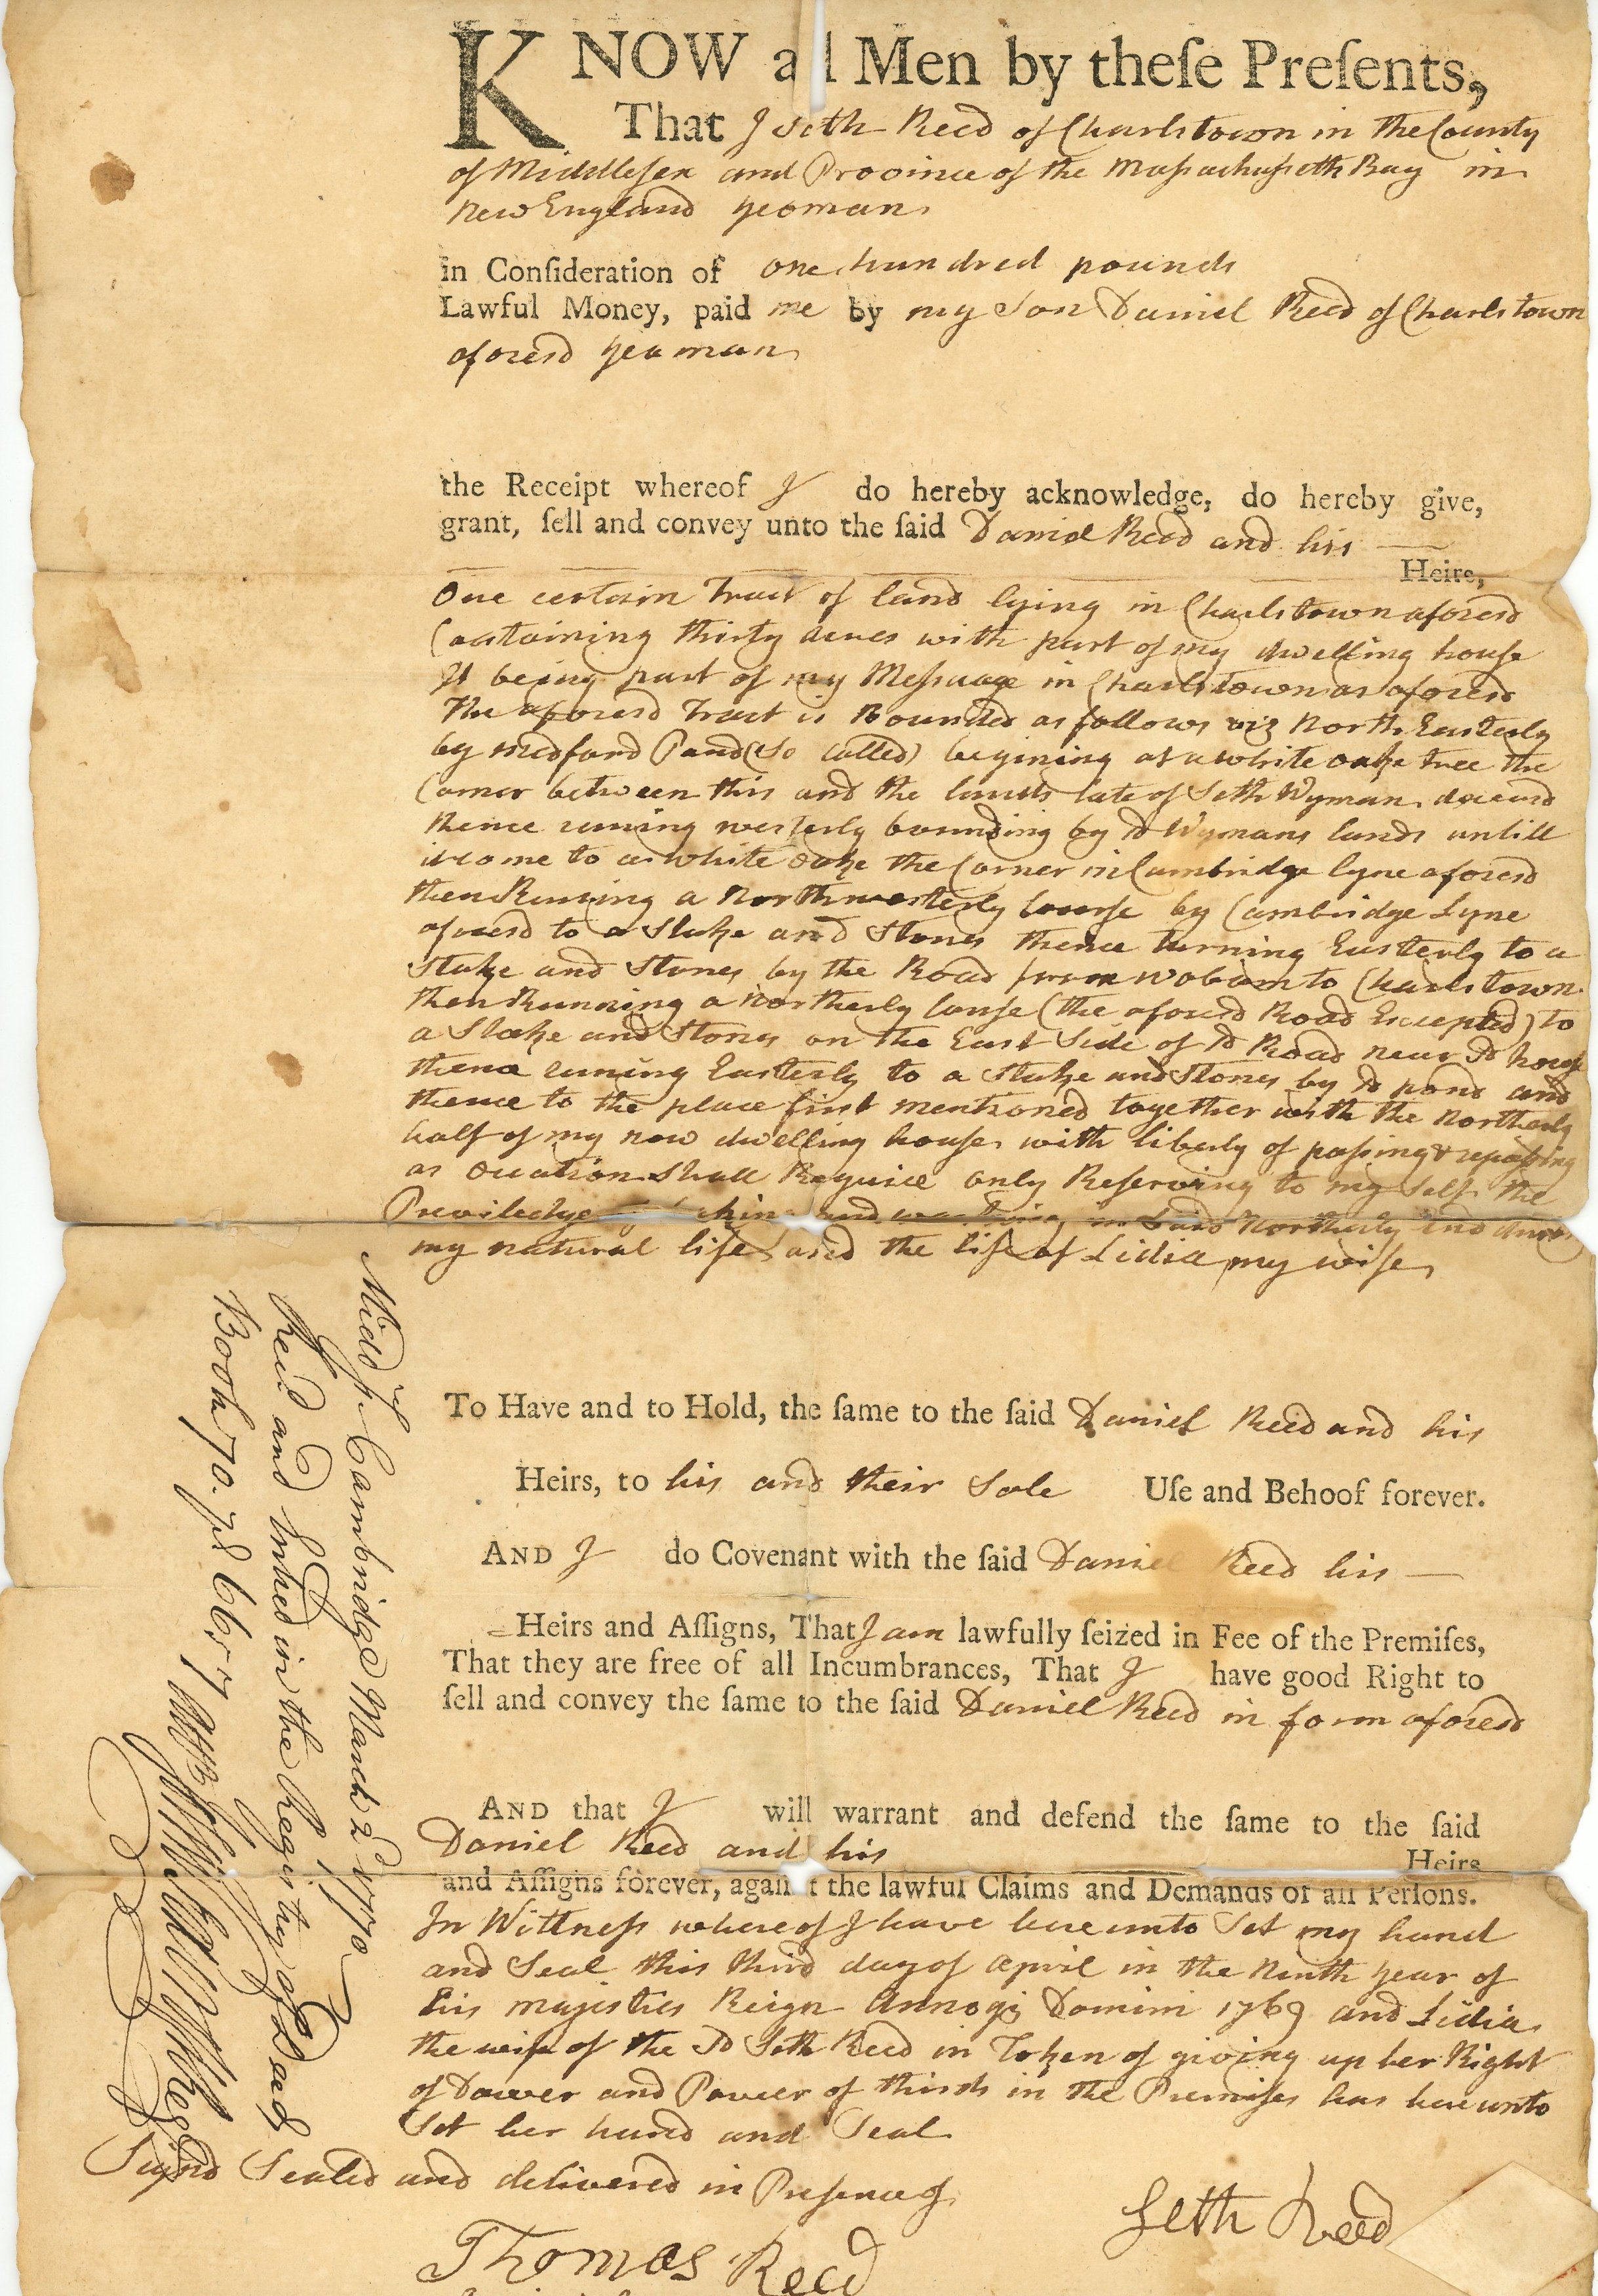 KNOW all Men by theſe Preſents,
That I Seth Reed of Charlstown in the County
of Middlesex and Province of the Massachusetts Bay in
New England yeoman
in Conſideration of one hundred pounds
Lawful Money, paid me by my Son Daniel Reed of Charlstown
aforesd yeaman
the Receipt whereof I do hereby acknowledge, do hereby give,
grant, ſell and convey unto the ſaid Daniel Reed and his
Heirs,
One certain Tract of land lying in Charlstown aforesd
Containing thirty acres with part of my dwelling house
It being part of my Messuage in Charlstown as aforesd
The aforesd Tract is Bounded as follows viz North Easterly
by medford Pond (So called) begining at a white oake tree the
Corner between this and the lands late of Seth Wyman deceasd
thence runing westerly bounding by sd Wymans lands untill
it come to a white oake the Corner in Cambridge lyne aforesd
then Runing a Northwesterly Course by Cambridge Lyne
aforesd to a Stake and Stones thence turning Easterly to a
Stake and Stones by the Road from woburn to Charlstown
then Running a Northerly Course (the aforesd Road Excepted) to
a Stake and Stones on the East Side of sd Road near sd house
thence runing Easterly to a Stake and Stones by sd pond and
thence to the place first mentioned together with the Northerly
half of my now dwelling house with liberty of passing & repassing
as occation Shall Require only Reserving to my Self the
Priviledge and in Said Northerly End
my natural life and the life of Lidia my wife
To Have and to Hold, the ſame to the ſaid Daniel Reed and his
Heirs, to his and their Sole Uſe and Behoof forever.
AND I do Covenant with the ſaid Daniel Reed his
Heirs and Aſſigns, That I am lawfully ſeized in Fee of the Premiſes,
That they are free of all Incumbrances, That I have good Right to
ſell and convey the ſame to the ſaid Daniel Reed in form aforesd
AND that I will warrant and defend the ſame to the ſaid
Daniel Reed and his Heirs
and Aſſigns forever, againſt the lawful Claims and Demands of all Perſons.
In Wittness whereof I have hereunto Set my hand
and Seal this third day of April in the Ninth year of
his majesties Reign Annoqe Domini 1769 and Lidia
the wife of the sd Seth Reed in Token of giving up her Right
of Dower and Power of thirds in the Premises has hereunto
Set her hand and Seal
Signd Sealed and delivered in Presence of
Seth Reed
Thomas Reed
Middx Cambridge March 2d 1770
Recd and Entred in the Registry of Deeds
Book 70. pa. 66